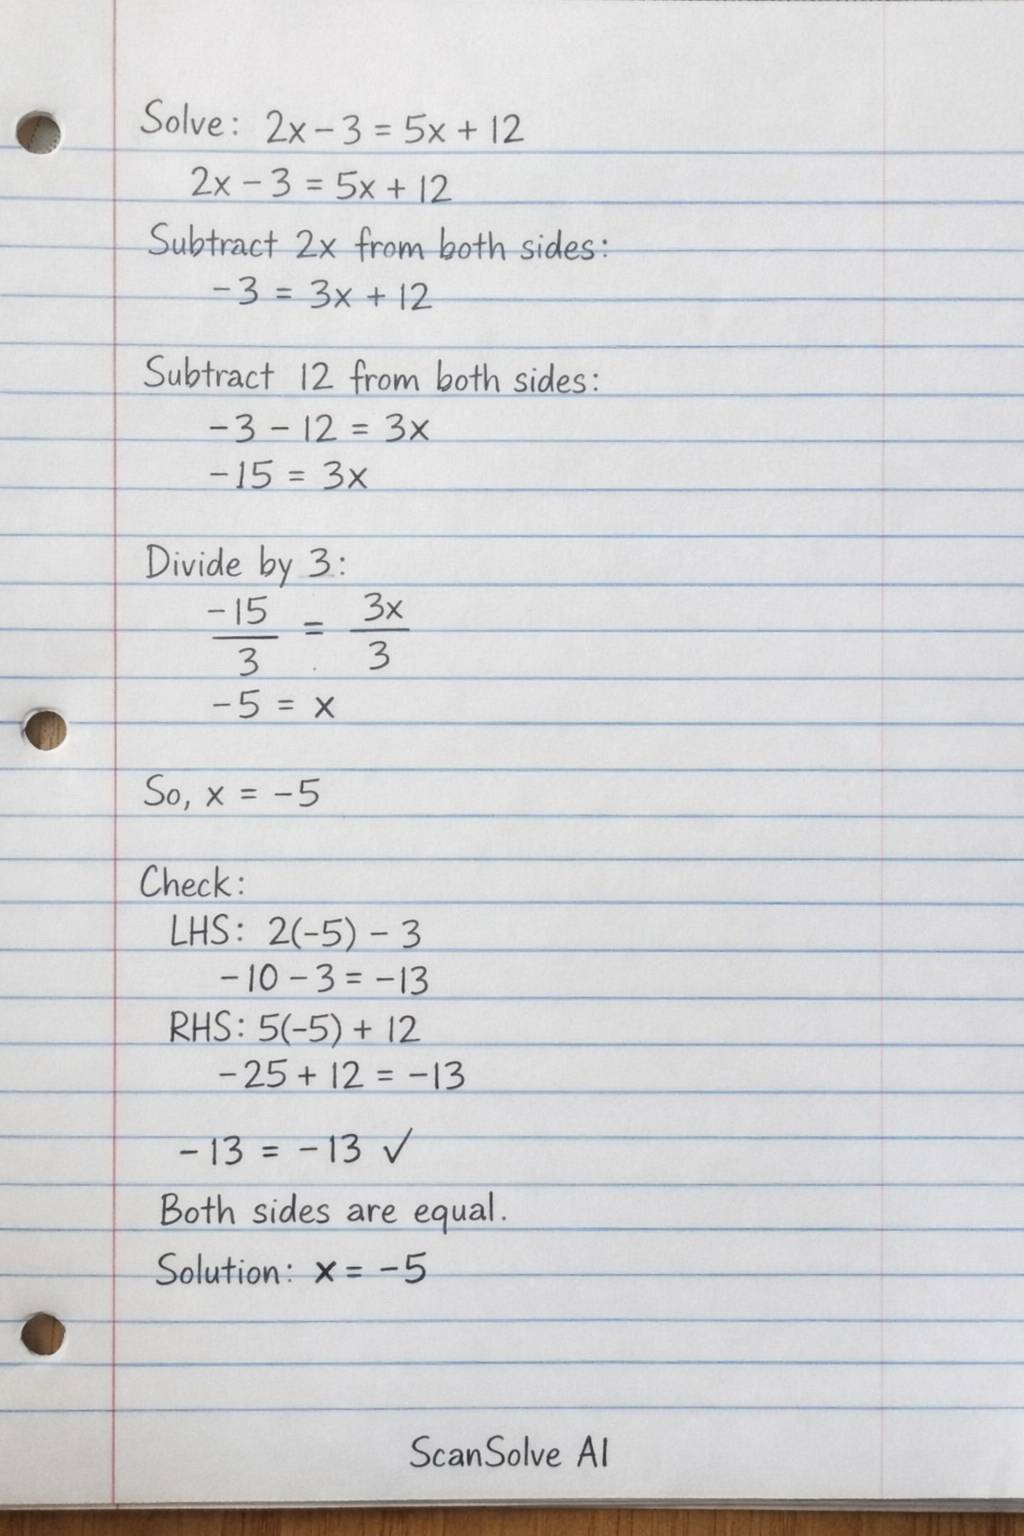 Solve: 2x - 3 = 5x + 12
2x - 3 = 5x + 12
Subtract 2x from both sides:
-3 = 3x + 12
Subtract 12 from both sides:
-3 - 12 = 3x
-15 = 3x
Divide by 3:
-15/3 = 3x/3
-5 = x
So, x = -5
Check:
LHS: 2(-5) - 3
-10 - 3 = -13
RHS: 5(-5) + 12
-25 + 12 = -13
-13 = -13 ✓
Both sides are equal.
Solution: x = -5
ScanSolve AI